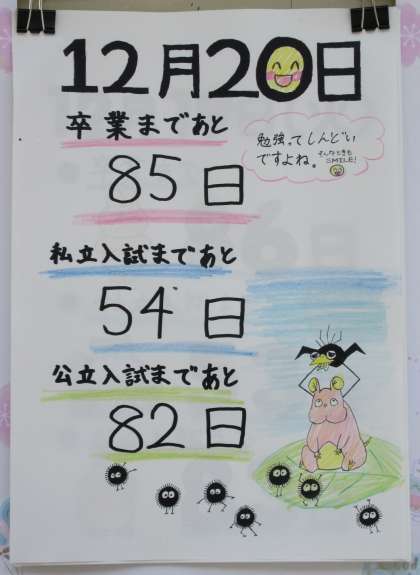 12月20日
卒業まであと
85日
勉強ってしんどい
ですよね。そんなときも
SMILE!
私立入試まであと
54日
公立入試まであと
82日